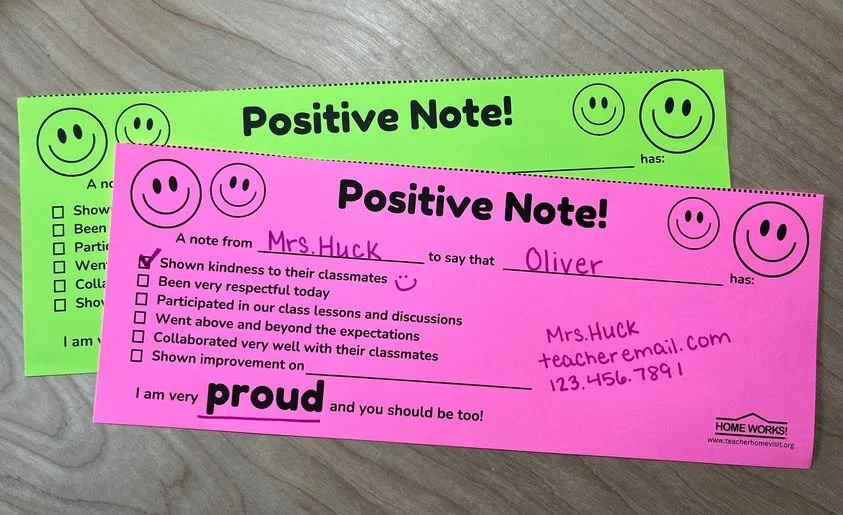 Positive Note!
has:
A no
Show
Been
Partic
Went
Colla
Show
I am v
Positive Note!
A note from Mrs. Huck to say that Oliver has:
Shown kindness to their classmates
Been very respectful today
Participated in our class lessons and discussions
Went above and beyond the expectations
Collaborated very well with their classmates
Shown improvement on
I am very proud and you should be too!
Mrs. Huck
teacheremail.com
123.456.7891
HOME WORKS!
www.teacherhomevisit.org